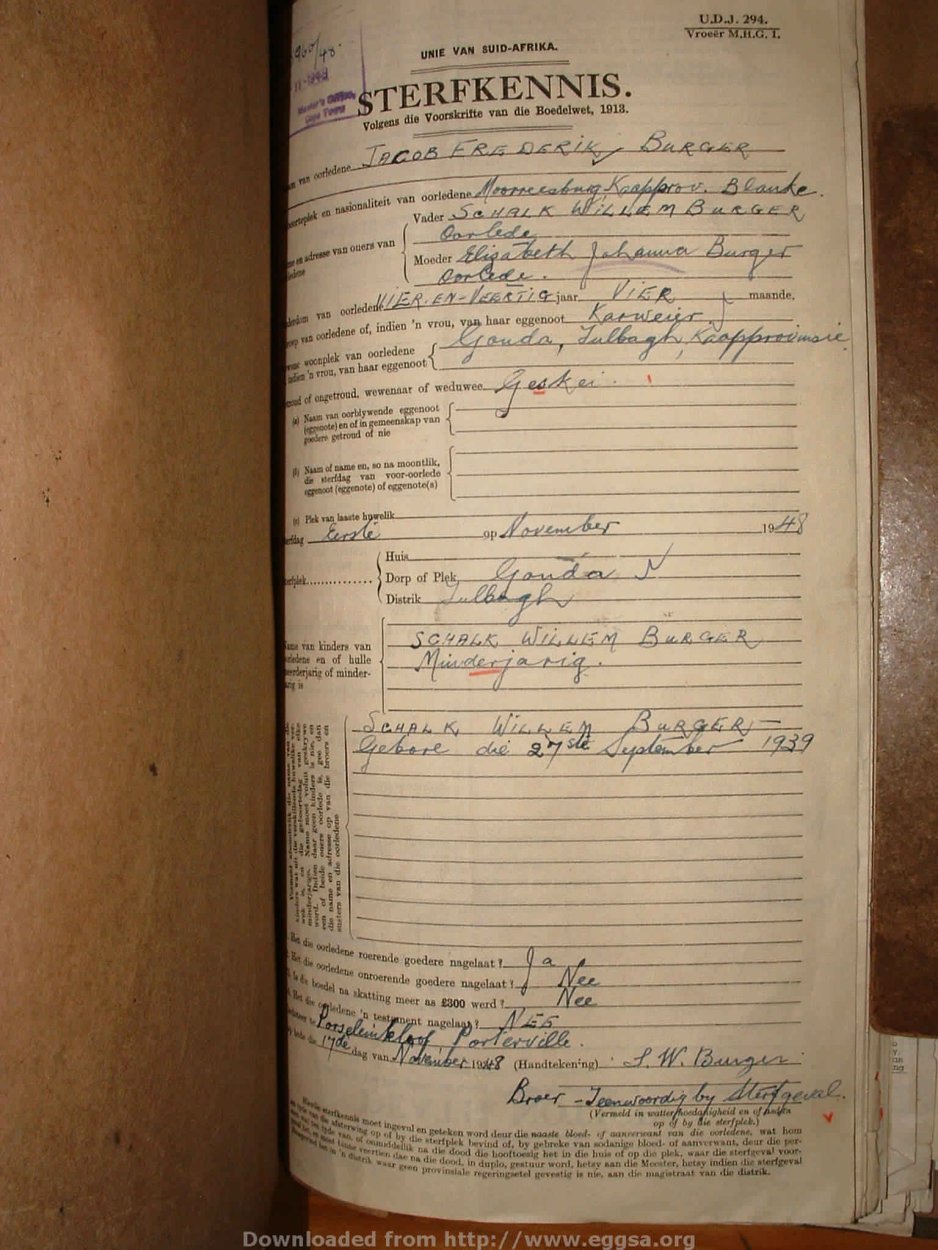 U.D.J. 294.
Vroeër M.H.G. I.
UNIE VAN SUID-AFRIKA.
Master's Office,
Cape Town
STERFKENNIS.
Volgens die Voorskrifte van die Boedelwet, 1913.
van oorledene JACOB FREDERIK BURGER
en nasionaliteit van oorledene Moorreesburg Kaapprov. Blanke.
Vader SCHALK WILLEM BURGER
Oorlede
en adresse van ouers van
Moeder Elisabeth Johanna Burger
Oorlede.
van oorledene VIER-EN-VEERTIG jaar VIER maande.
van oorledene of, indien 'n vrou, van haar eggenoot Karweier
woonplek van oorledene Gouda, Tulbagh, Kaapprovinsie
indien 'n vrou, van haar eggenoot
of ongetroud, wewenaar of weduwee Geskei.
(a) Naam van oorblywende eggenoot
(eggenote) en of in gemeenskap van
goedere getroud of nie
(b) Naam of name en, so na moontlik,
die sterfdag van voor-oorlede
eggenoot (eggenote) of eggenote(s)
(c) Plek van laaste huwelik
Eerste op November 1948
Huis
Dorp of Plek Gouda
Distrik Tulbagh
van kinders van
en of hulle
of minder-
is
SCHALK WILLEM BURGER
Minderjarig.
SCHALK WILLEM BURGER
Gebore die 27ste September 1939
Het die oorledene roerende goedere nagelaat? Ja
Het die oorledene onroerende goedere nagelaat? Nee
Is die boedel na skatting meer as £300 werd? Nee
Het die oorledene 'n testament nagelaat? NEE
te Porseleinkloof, Porterville.
die 17de dag van November 1948 (Handtekening) S. W. Burger
Broer - Teenwoordig by Sterfgeval.
(Vermeld in watter hoedanigheid en of
op of by die sterfplek.)
sterfkennis moet ingevul en geteken word deur die naaste bloed- of aanverwant van die oorledene, wat hom
op of by die sterfplek bevind of, by gebreke van sodanige bloed- of aanverwant, deur die per-
of onmiddellik na die dood die hooftoesig het in die huis of op die plek, waar die sterfgeval voor-
veertien dae na die dood, in duplo, gestuur word, hetsy aan die Meester, hetsy indien die sterfgeval
in 'n distrik waar geen provinsiale regeringsetel gevestig is nie, aan die magistraat van die distrik.
Downloaded from http://www.eggsa.org